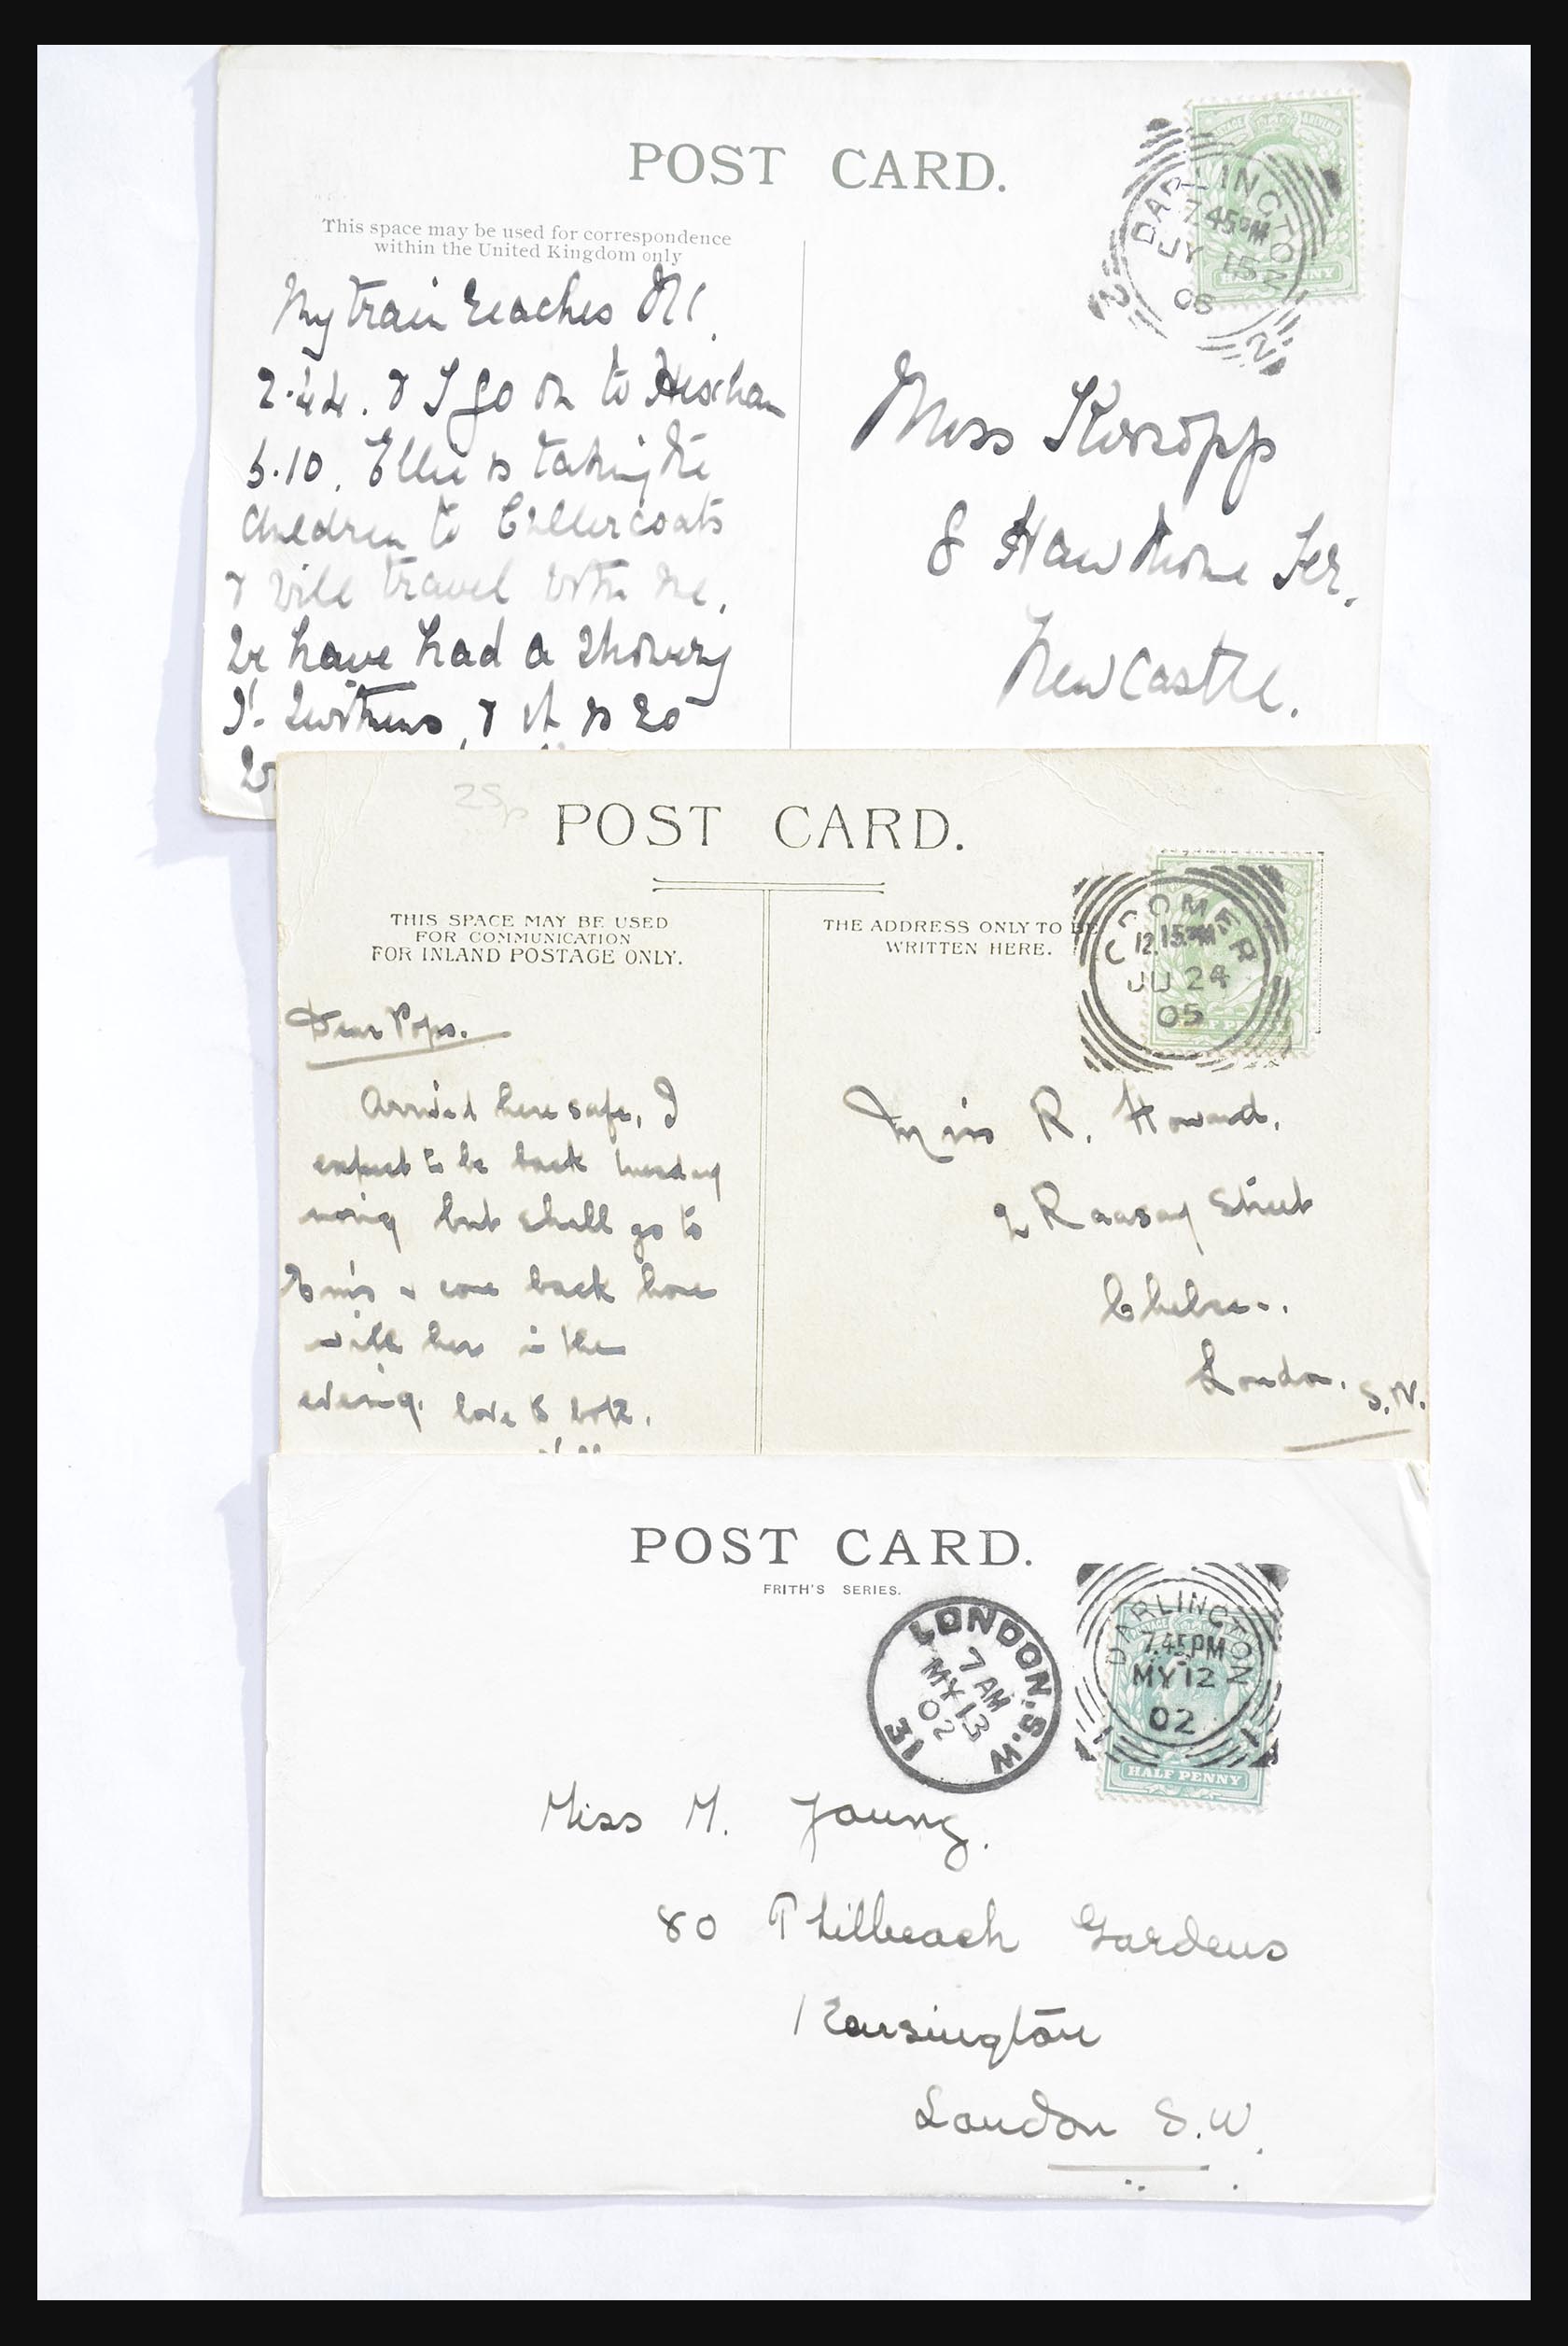 POST CARD.
This space may be used for correspondence
within the United Kingdom only
DARLINGTON
7 45 PM
JY 15
06
2 2
HALF PENNY
My train reaches
2.44. & I go on to Hexham
5.10. Ellie is taking the
children to Cullercoats
& will travel with me.
We have had a showery
St. Swithens, & it is so
Miss Kirsopp
8 Hawthorne Ter.
Newcastle.
25p
POST CARD.
THIS SPACE MAY BE USED
FOR COMMUNICATION
FOR INLAND POSTAGE ONLY.
THE ADDRESS ONLY TO BE
WRITTEN HERE.
CROMER
12.15 PM
JU 24
05
Dear Pops.
Arrived here safe, I
expect to be back tuesday
but shall go to
Em's & come back home
with her in the
evening. love to both.
Miss R. Howard.
2 Raasay Street
Chelsea.
London. S.W.
POST CARD.
FRITH'S SERIES.
LONDON. S.W
7 AM
MY 13
02
31
DARLINGTON
7.45 PM
MY 12
02
1 1
HALF PENNY
Miss M. Young.
80 Philbeach Gardens
Kensington
London S.W.